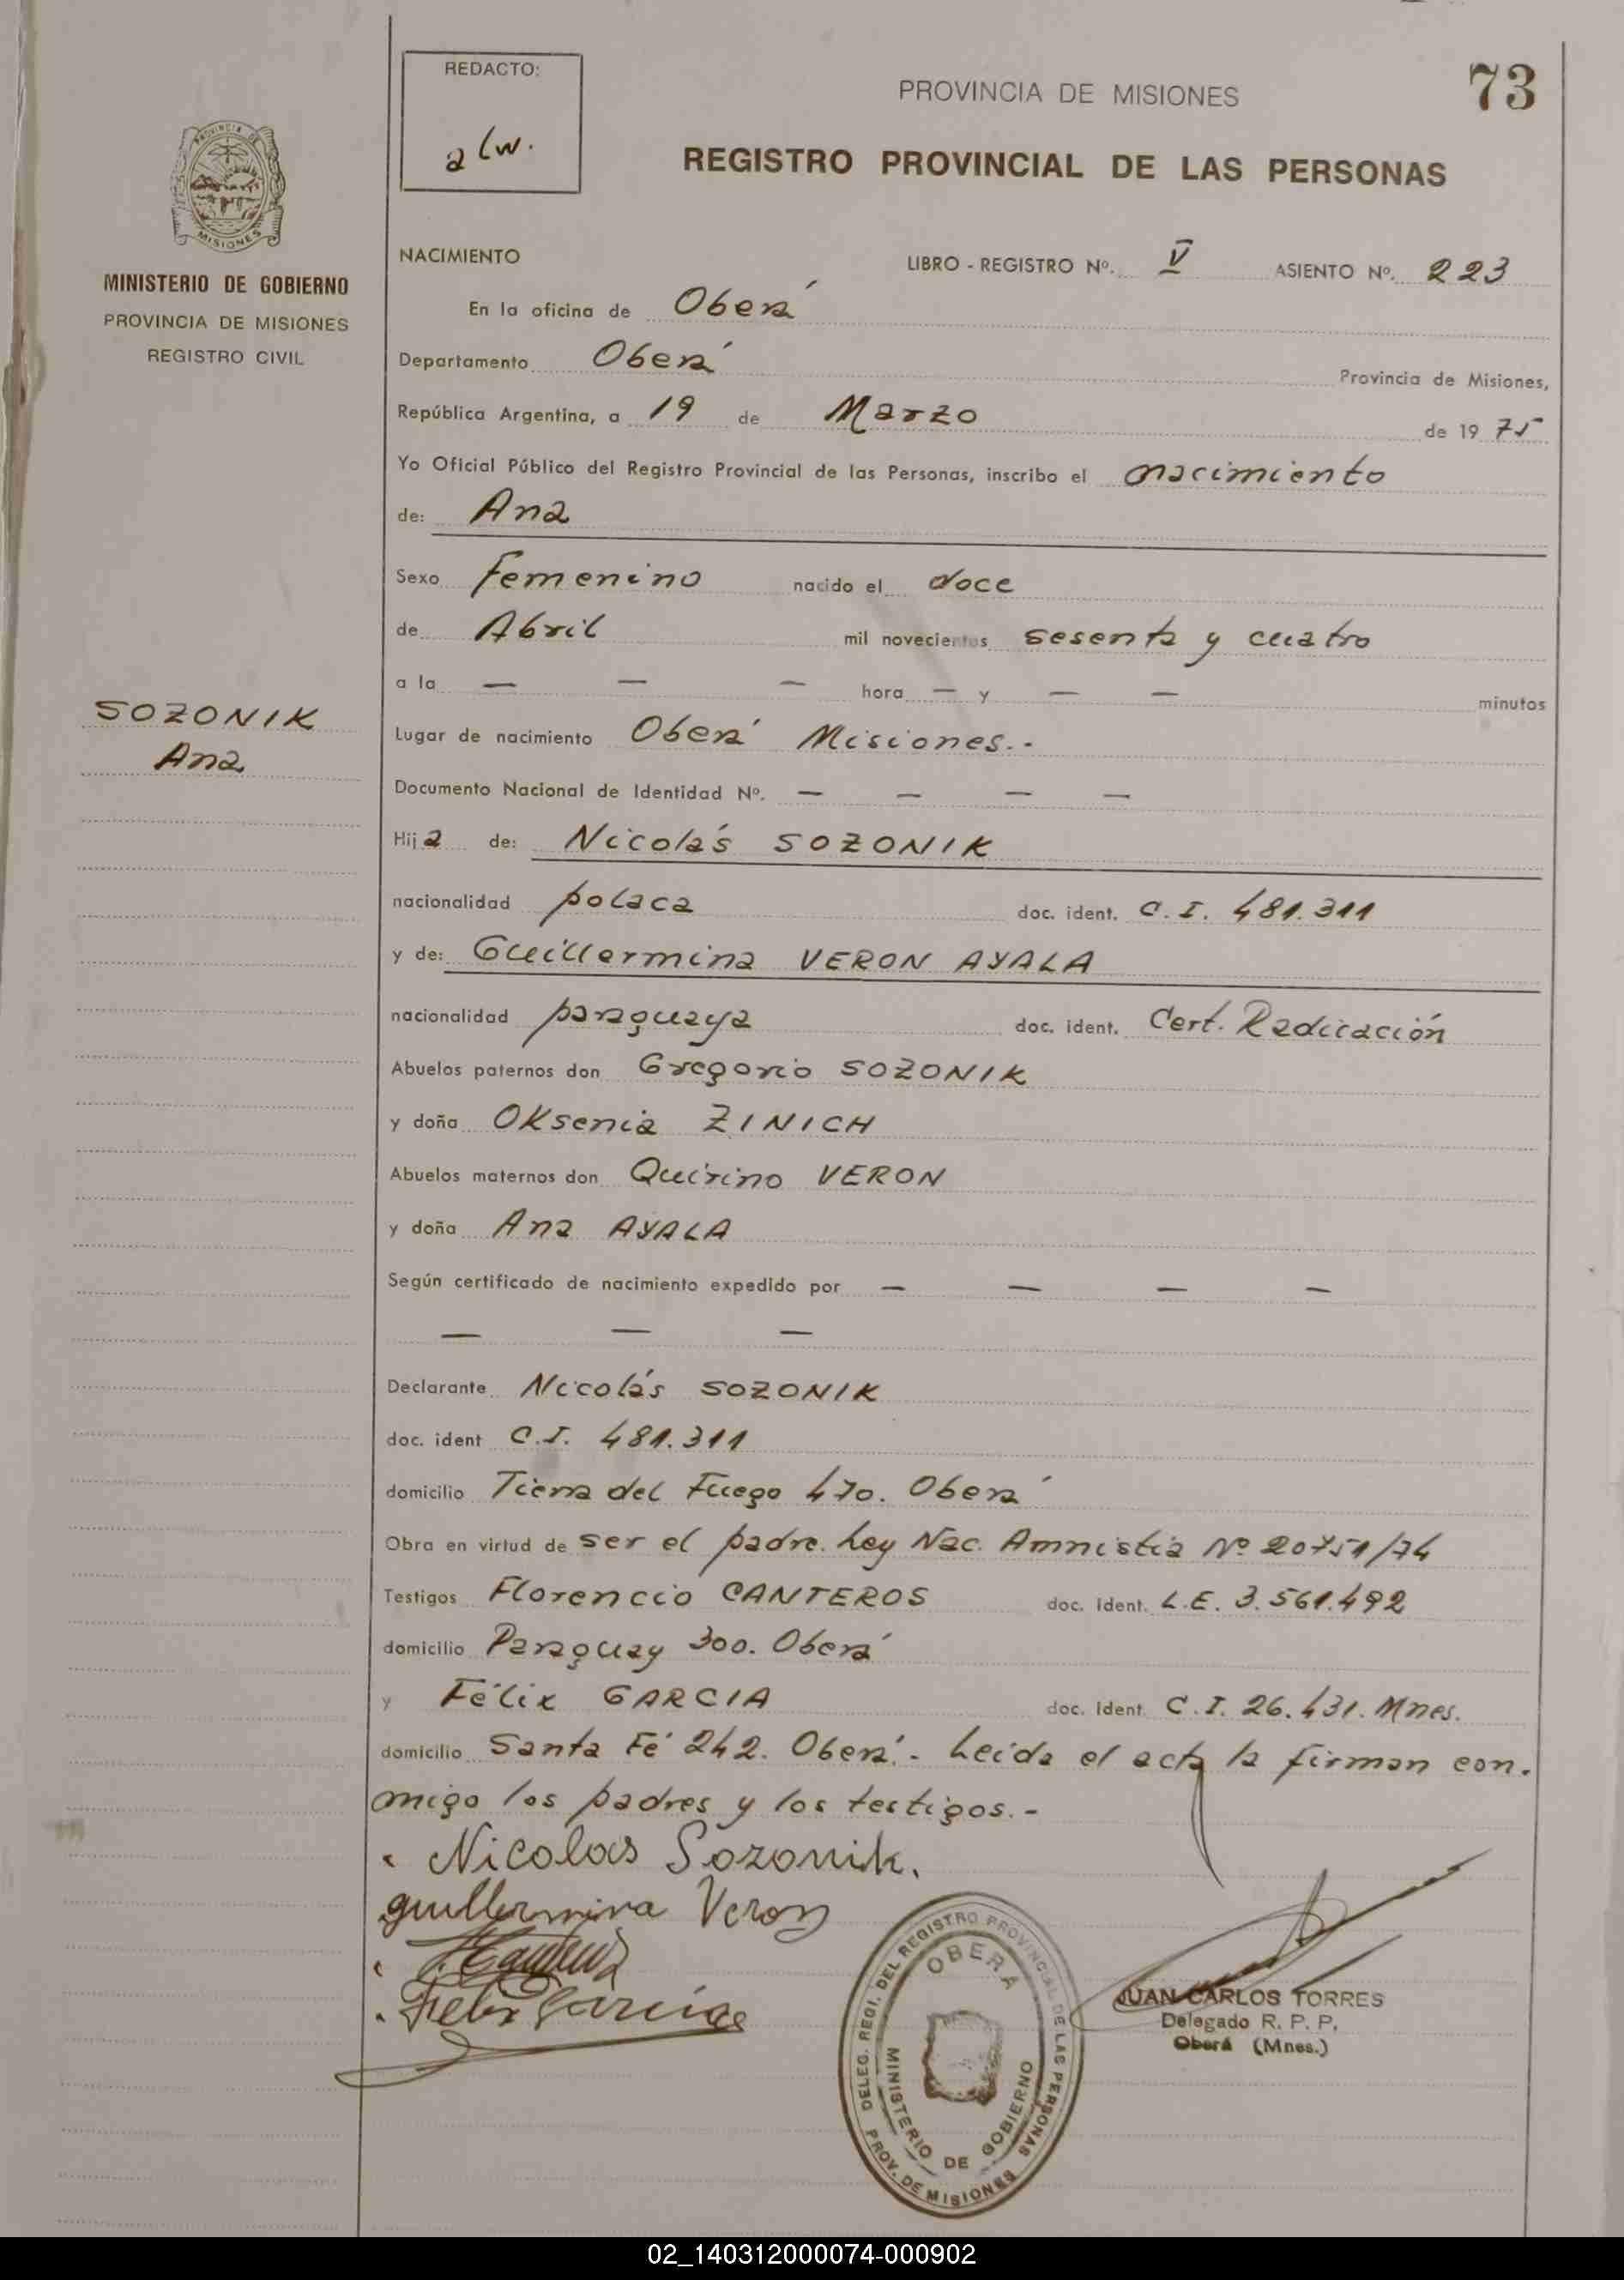 REDACTO:
alw.
PROVINCIA DE MISIONES
73
REGISTRO PROVINCIAL DE LAS PERSONAS
PROVINCIA DE
MISIONES
MINISTERIO DE GOBIERNO
PROVINCIA DE MISIONES
REGISTRO CIVIL
NACIMIENTO LIBRO - REGISTRO Nº. V ASIENTO Nº. 223
En la oficina de Oberá
Departamento Oberá Provincia de Misiones,
República Argentina, a 19 de Marzo de 19 75
Yo Oficial Público del Registro Provincial de las Personas, inscribo el nacimiento
de: Ana
Sexo Femenino nacido el doce
de Abril mil novecientos sesenta y cuatro
a la — — — hora — y — — minutos
SOZONIK
Ana
Lugar de nacimiento Oberá Misiones.-
Documento Nacional de Identidad Nº. — — — —
Hija de: Nicolás SOZONIK
nacionalidad polaca doc. ident. C.I. 481.311
y de: Guillermina VERON AYALA
nacionalidad paraguaya doc. ident. Cert. Radicación
Abuelos paternos don Gregorio SOZONIK
y doña OKsenia ZINICH
Abuelos maternos don Quirino VERON
y doña Ana AYALA
Según certificado de nacimiento expedido por — — — —
— — —
Declarante Nicolás SOZONIK
doc. ident C.I. 481.311
domicilio Tierra del Fuego 470. Oberá
Obra en virtud de ser el padre. Ley Nac. Amnistia Nº 20751/74
Testigos Florencio CANTEROS doc. ident. L.E. 3.561.492
domicilio Paraguay 300. Oberá
y Félix GARCIA doc. ident. C.I. 26.431. Mnes.
domicilio Santa Fé 242. Oberá.- Leida el acta la firman con.
migo los padres y los testigos.-
Nicolas Sozonik.
guillermina Veron
Felix Garcia
DELEG. REGI. DEL REGISTRO PROVINCIAL DE LAS PERSONAS
OBERA
MINISTERIO DE GOBIERNO
PROV. DE MISIONES
JUAN CARLOS TORRES
Delegado R. P. P.
Oberá (Mnes.)
02_140312000074-000902